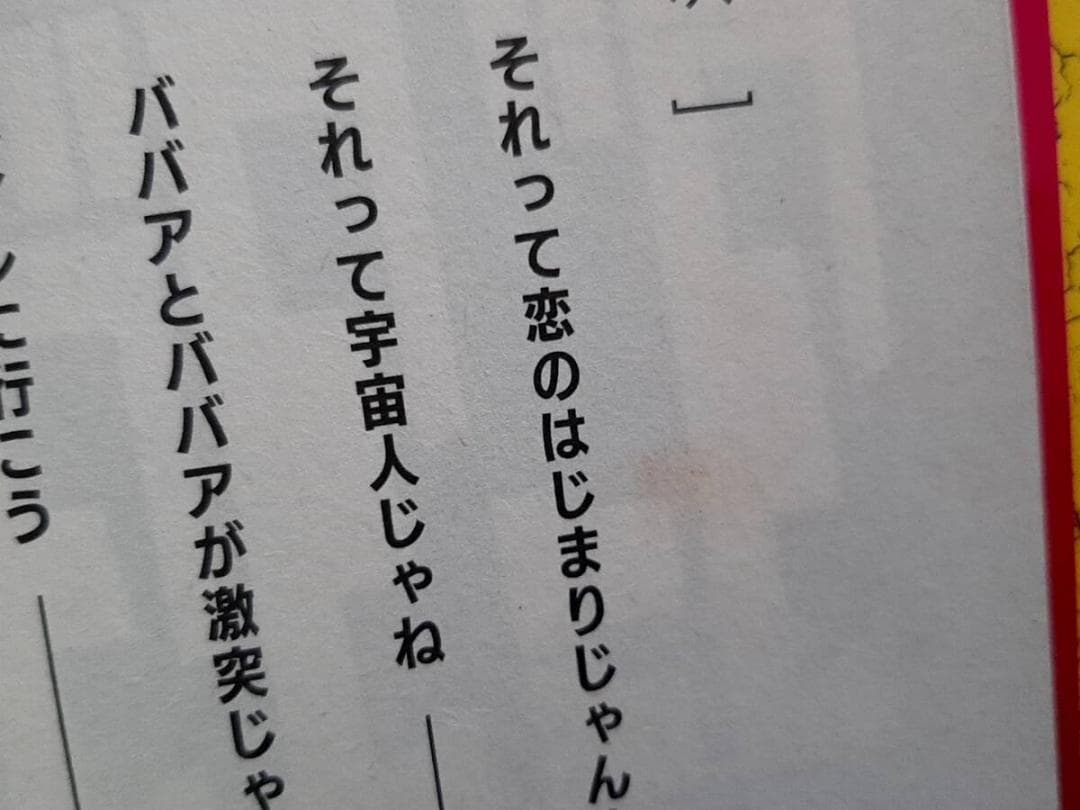 それって恋のはじまりじゃん
それって宇宙人じゃね
ババアとババアが激突じゃ
に行こう